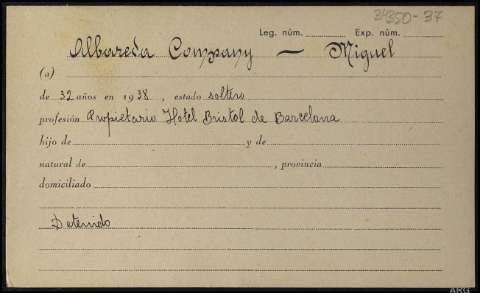 34350-37
Leg. núm. Exp. núm.
Albareda Company — Miguel
(a)
de 32 años en 1938, estado soltero
profesión Propietario Hotel Bristol de Barcelona
hijo de y de
natural de , provincia
domiciliado
Detenido
ARG